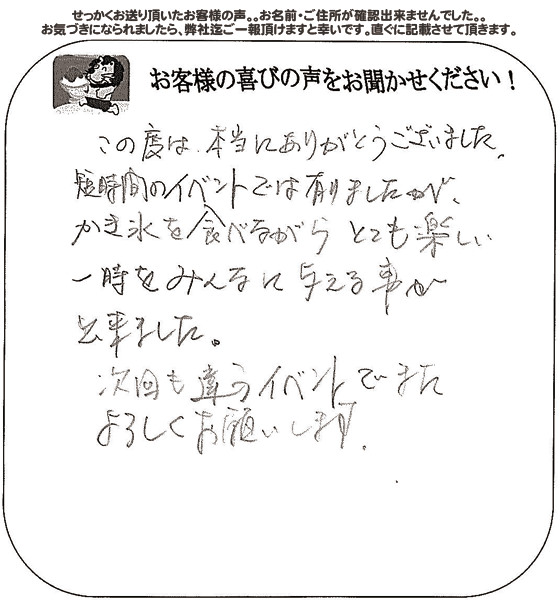 せっかくお送り頂いたお客様の声。。お名前・ご住所が確認出来ませんでした。。
お気づきになられましたら、弊社迄ご一報頂けますと幸いです。直ぐに記載させて頂きます。
お客様の喜びの声をお聞かせください！
この度は、本当にありがとうございました。
短時間のイベントでは有りましたが、
かき氷を食べながら とても楽しい
一時をみんなに与える事が
出来ました。
次回も違うイベントでまた
よろしくお願いします。